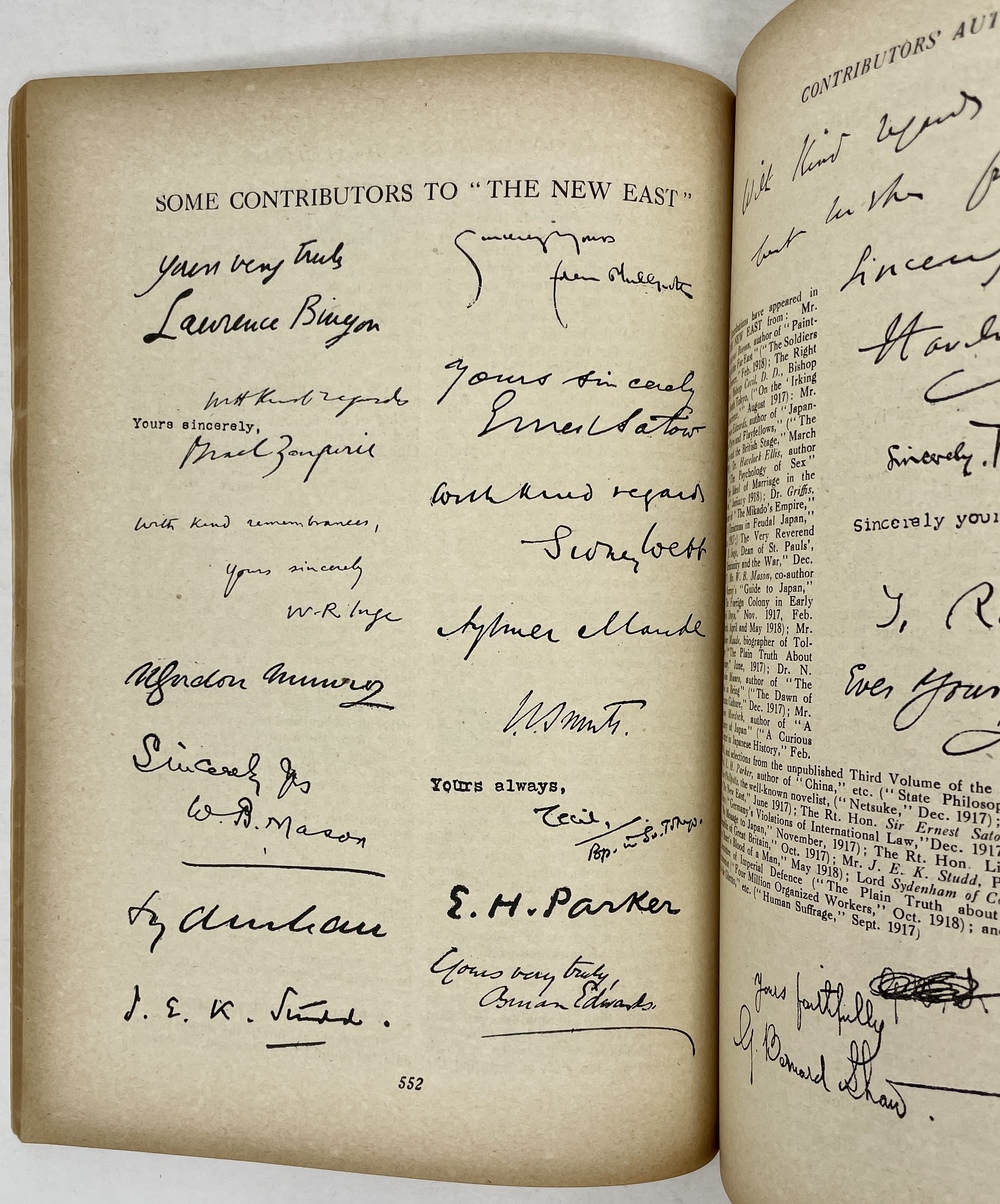 SOME CONTRIBUTORS TO "THE NEW EAST"
Yours very truly
Lawrence Binyon
With kind regards
Yours sincerely,
Israel Zangwill
With kind remembrances,
Yours sincerely
W. R. Inge
N Gordon Munro
Sincerely Yrs
W. B. Mason
Sydenham
J. E. K. Studd.
Sincerely yours
Yours sincerely
Ernest Satow
With kind regards
Sidney Webb
Aylmer Maude
J. C. Smuts.
Yours always,
Cecil,
Bp. in S. Tokyo.
E. H. Parker
Yours very truly,
Osman Edwards.
552
CONTRIBUTORS' AUT
With kind regards
best wishes
Sincerely
have appeared in
NEW EAST from: Mr.
author of "Paint-
Far East" ("The Soldiers
Feb. 1918); The Right
Cecil, D. D., Bishop
Tokyo, ("On the 'Irking
August 1917); Mr.
Edwards, author of "Japan-
and Playfellows," ("The
and the British Stage," March
Dr. Havelock Ellis, author
Psychology of Sex"
of Marriage in the
January 1918); Dr. Griffis,
"The Mikado's Empire,"
in Feudal Japan,"
The Very Reverend
Inge, Dean of St. Pauls',
and the War," Dec.
Mr. W. B. Mason, co-author
"Guide to Japan,"
Foreign Colony in Early
Days," Nov. 1917, Feb.
April and May 1918); Mr.
Maude, biographer of Tol-
"The Plain Truth About
June, 1917); Dr. N.
Munro, author of "The
Being" ("The Dawn of
Culture," Dec. 1917); Mr.
Murdoch, author of "A
of Japan" ("A Curious
in Japanese History," Feb.
and selections from the unpublished Third Volume of the
E. H. Parker, author of "China," etc. ("State Philosop
the well-known novelist, ("Netsuke," Dec. 1917);
New East," June 1917); The Rt. Hon. Sir Ernest Sato
"Germany's Violations of International Law," Dec. 1917
Message to Japan," November, 1917); The Rt. Hon. Li
of Great Britain," Oct. 1917); Mr. J. E. K. Studd, P
Blood of a Man," May 1918); Lord Sydenham of Co
of Imperial Defence ("The Plain Truth about
"Four Million Organized Workers," Oct. 1918); an
etc. ("Human Suffrage," Sept. 1917)
Sincerely.
Sincerely your
J. R.
Ever Your
Yours faithfully
G. Bernard Shaw.